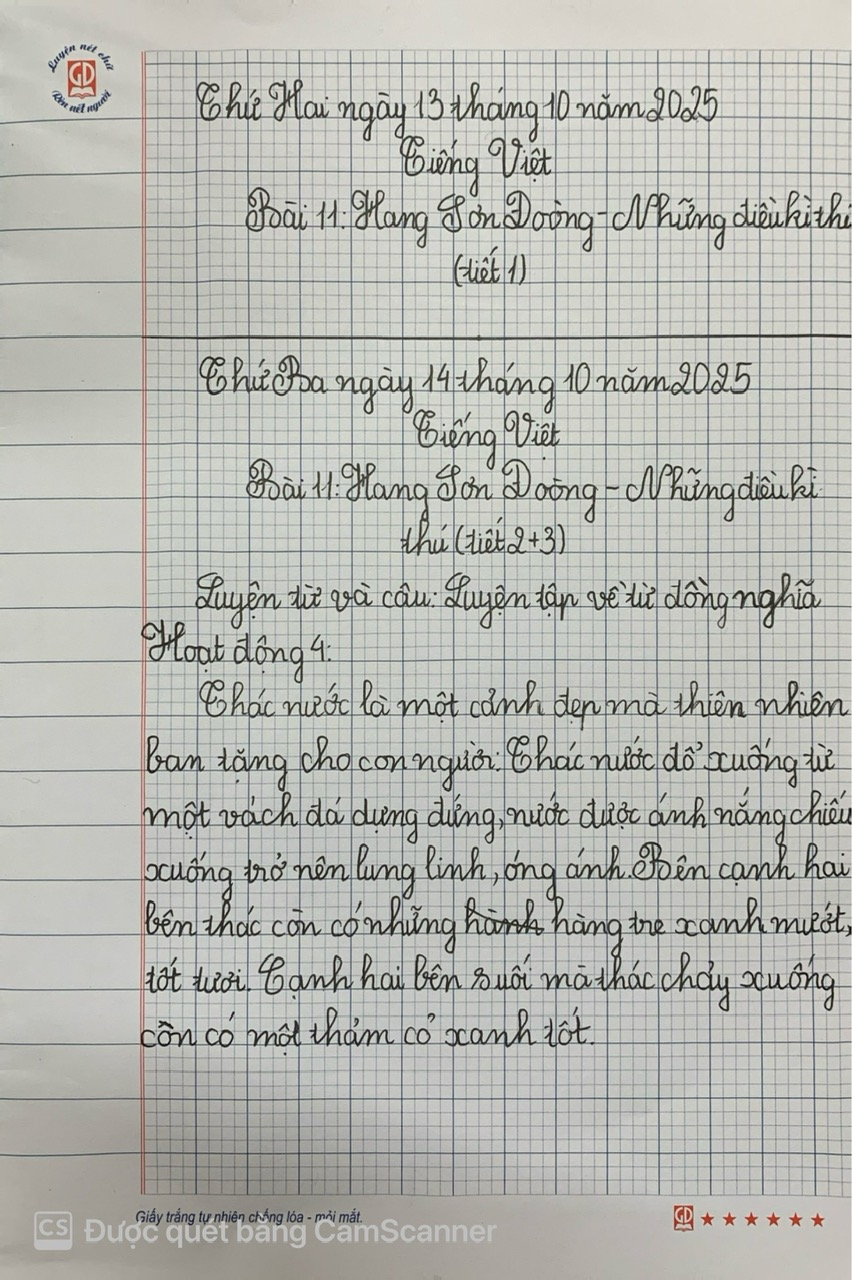 Luyện nét chữ
GD
Rèn nết người
Thứ Hai ngày 13 tháng 10 năm 2025
Tiếng Việt
Bài 11: Hang Sơn Đoòng - Những điều kì thú
(tiết 1)
Thứ Ba ngày 14 tháng 10 năm 2025
Tiếng Việt
Bài 11: Hang Sơn Đoòng - Những điều kì
thú (tiết 2+3)
Luyện từ và câu: Luyện tập về từ đồng nghĩã
Hoạt động 4:
Thác nước là một cảnh đẹp mà thiên nhiên
ban tặng cho con người. Thác nước đổ xuống từ
một vách đá dựng đứng, nước được ánh nắng chiếu
xuống trở nên lung linh, óng ánh. Bên cạnh hai
bên thác còn có những hành hàng tre xanh mướt,
tốt tươi. Cạnh hai bên suối mà thác chảy xuống
còn có một thảm cỏ xanh tốt.
Giấy trắng tự nhiên chống lóa - mỏi mắt.
GD
CS Được quét bằng CamScanner